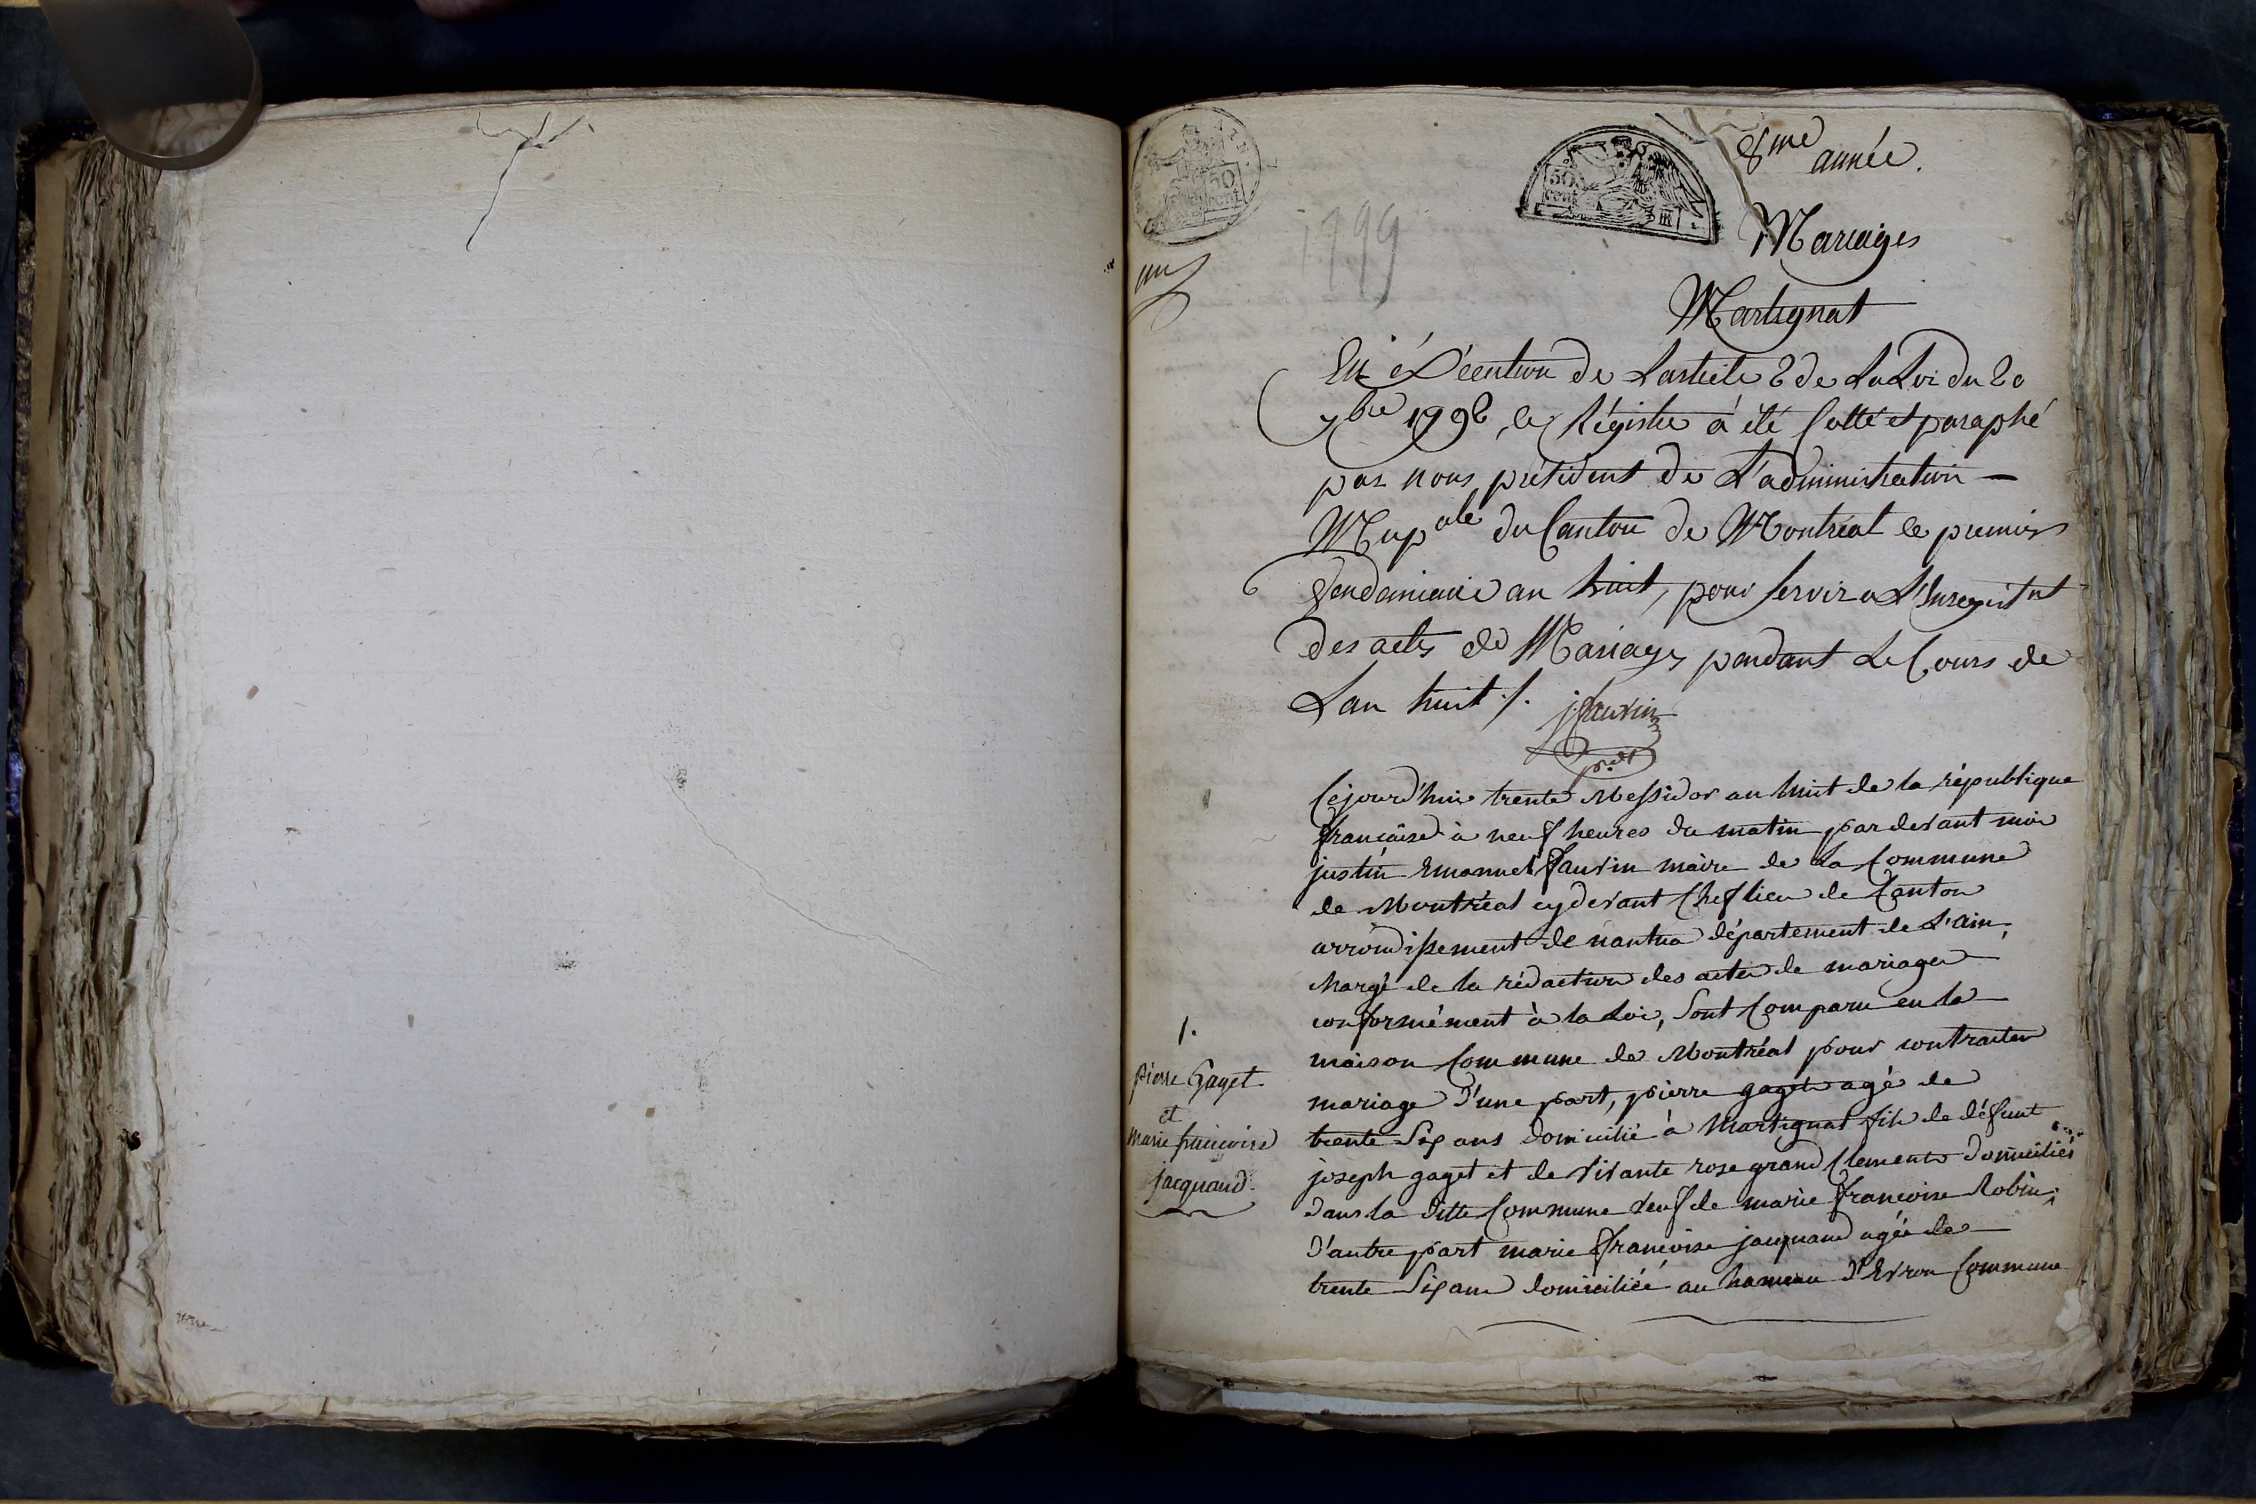 8me année.
50 cent
50 cent
1799
un
Mariages
Martignat
En éxécution de L'article 2 de La Loi du 20
7bre 1792, le Régistre à été Cotté et paraphé
par nous président de L'administration —
Mupale du Canton de Montréal le premier
Vendemiaire an huit, pour servir a L'Inregistnt
des actes de Mariages pendant Le Cours de
L'an huit /.
jfauvin
pdt
Cejourd'hui trente Messidor an huit de la république
francaise à neuf heures du matin par devant moi
justin Emanuel fauvin maire de La Commune
de Montréal cy devant Chef lieu de Canton
arrondissement de nantua département de L'ain,
chargé de la rédaction des actes de mariages
conformément à la Loi, Sont Comparu en la
maison Commune de Montréal pour contracter
1.
Pierre Gaget
et
Marie francoise
jacquand
mariage d'une part, pierre gaget agé de
trente Six ans domicilié à Martignat fils de défunt
joseph gaget et de vivante rose grand Clement domiciliés
dans la ditte Commune veuf de marie francoise Robin;
d'autre part marie francoise jacquand agée de
trente Six ans domiciliée au hameau d'Evron Commune